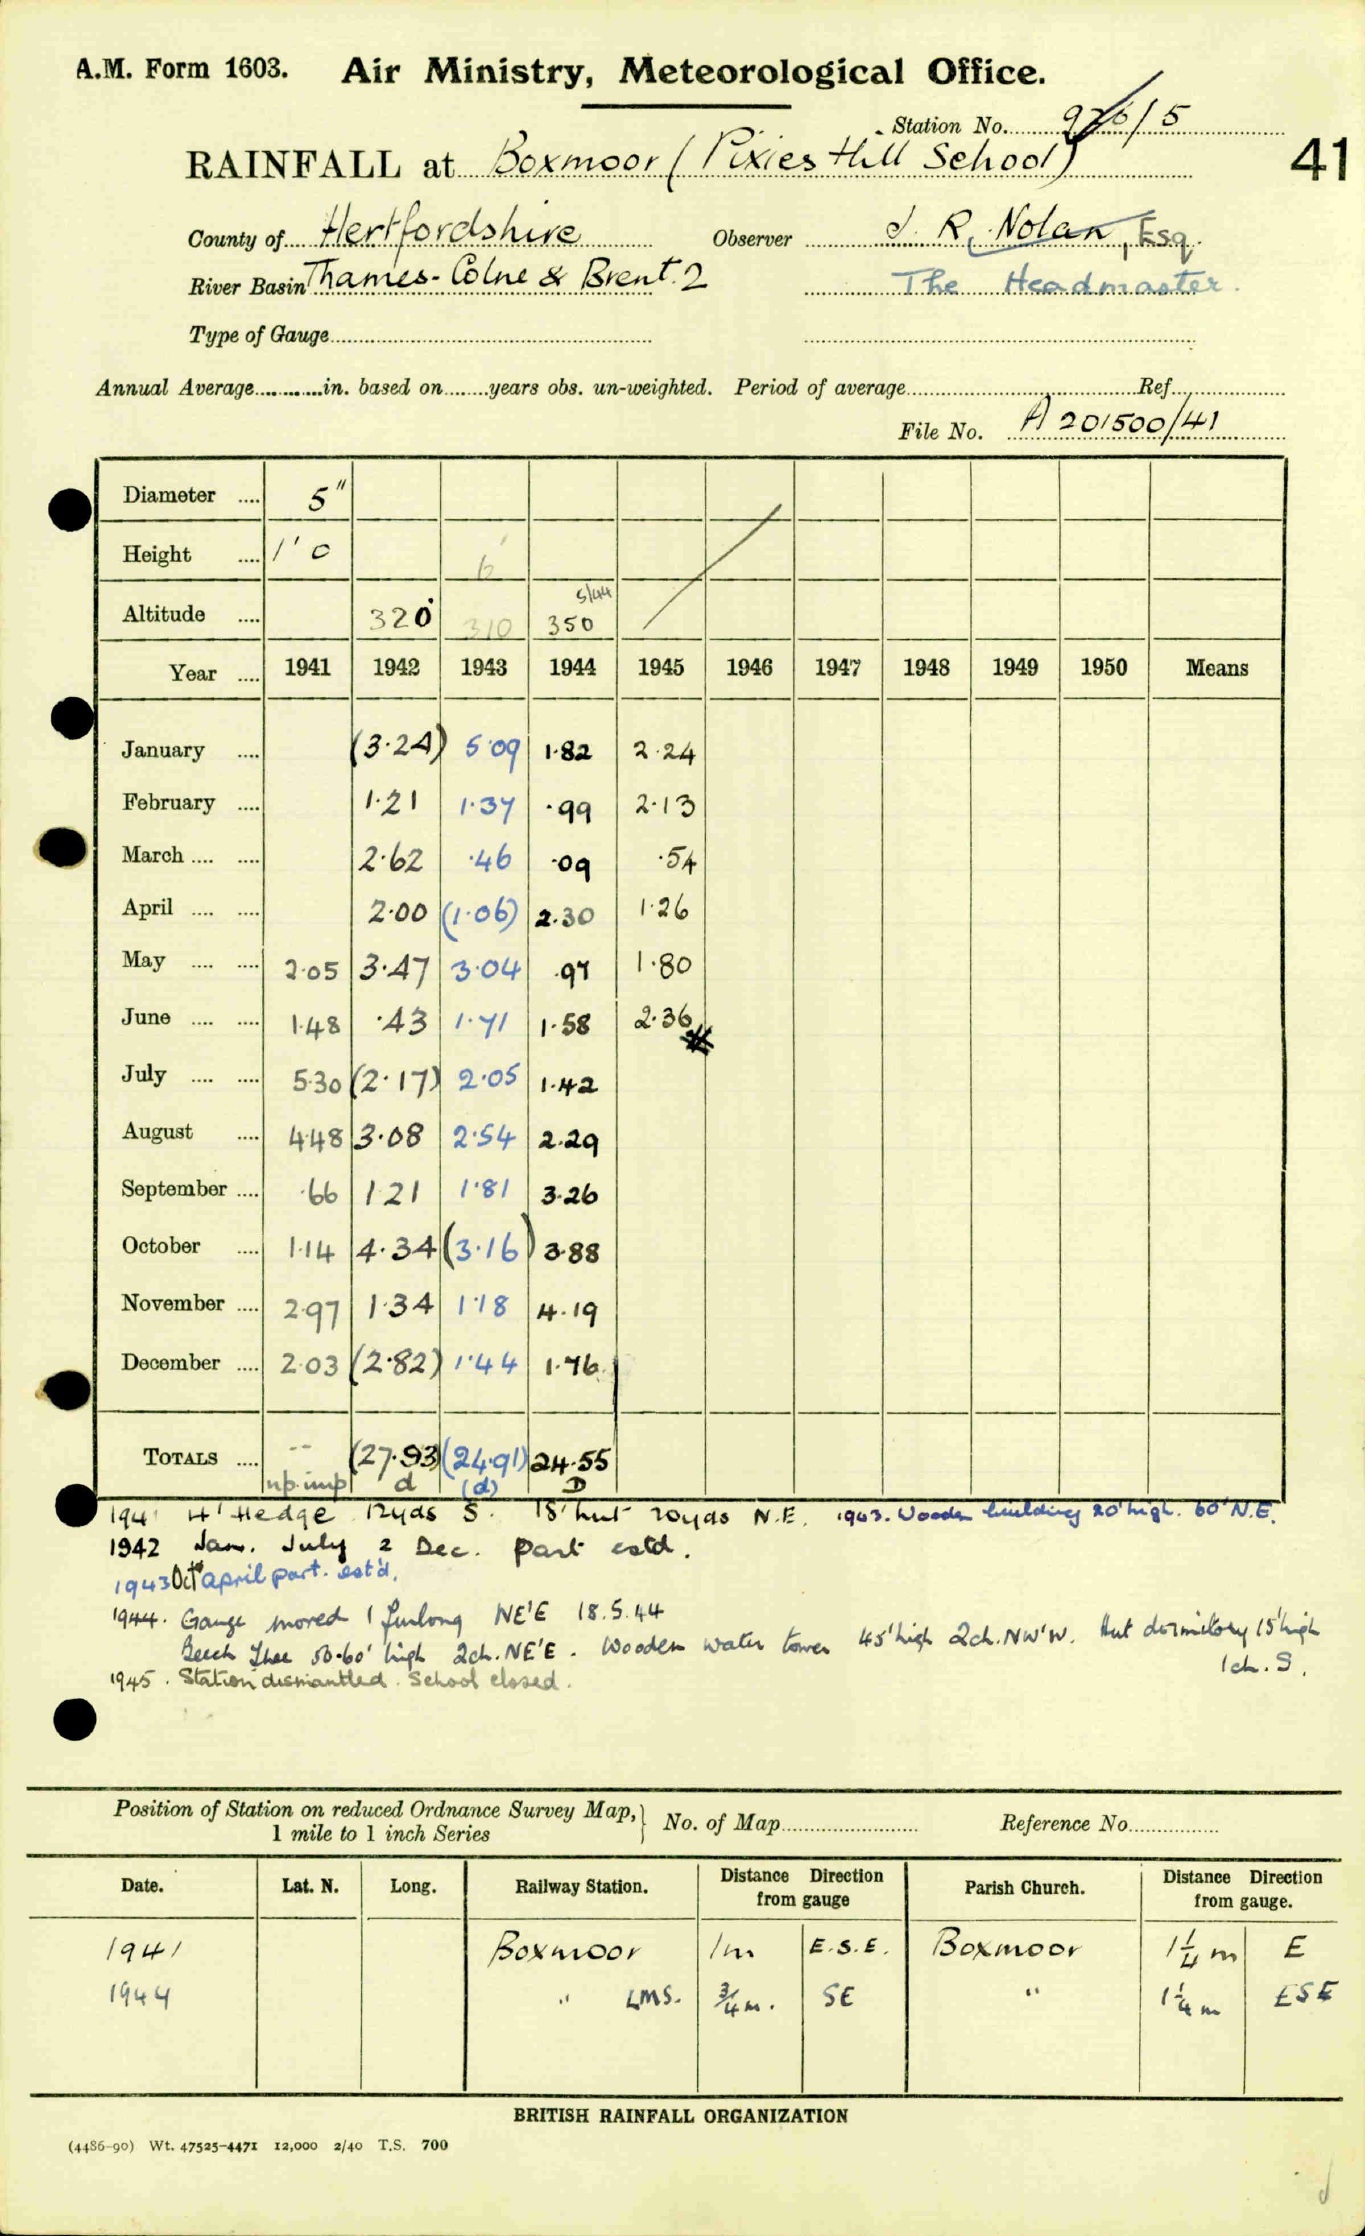 A.M. Form 1603. Air Ministry, Meteorological Office.
Station No. 926/5
RAINFALL at Boxmoor (Pixies Hill School)
41
County of Hertfordshire Observer J. R. Nolan, Esq.
River Basin Thames-Colne & Brent. 2 The Headmaster.
Type of Gauge
Annual Average in. based on years obs. un-weighted. Period of average Ref.
File No. A 201500/41
Diameter 5"
Height 1' 0 6'
5/44
Altitude 320' 310 350
Year 1941 1942 1943 1944 1945 1946 1947 1948 1949 1950 Means
January (3.24) 5.09 1.82 2.24
February 1.21 1.37 .99 2.13
March 2.62 .46 .09 .54
April 2.00 (1.06) 2.30 1.26
May 2.05 3.47 3.04 .97 1.80
June 1.48 .43 1.71 1.58 2.36 #
July 5.30 (2.17) 2.05 1.42
August 4.48 3.08 2.54 2.29
September .66 1.21 1.81 3.26
October 1.14 4.34 (3.16) 3.88
November 2.97 1.34 1.18 4.19
December 2.03 (2.82) 1.44 1.76
TOTALS -- (27.93) (24.91) 24.55
np. imp d (d) D
1941 4' Hedge 12yds S. 18' hut 20yds N.E. 1943. Wooden building 20' high. 60' N.E.
1942 Jan. July & Dec. part estd.
1943 Oct & April part. est'd.
1944. Gauge moved 1 furlong NE'E 18.5.44
Beech Tree 50-60' high 2ch. NE'E. Wooden water tower 45' high 2ch. NW'W. Hut dormitory 15' high
1ch. S.
1945. Station dismantled. School closed.
Position of Station on reduced Ordnance Survey Map, 1 mile to 1 inch Series } No. of Map Reference No.
Date. Lat. N. Long. Railway Station. Distance Direction from gauge Parish Church. Distance Direction from gauge.
1941 Boxmoor 1m E.S.E. Boxmoor 1¼ m E
1944 " LMS. ¾ m. SE " 1¼ m ESE
BRITISH RAINFALL ORGANIZATION
(4486-90) Wt. 47525-4471 12,000 2/40 T.S. 700